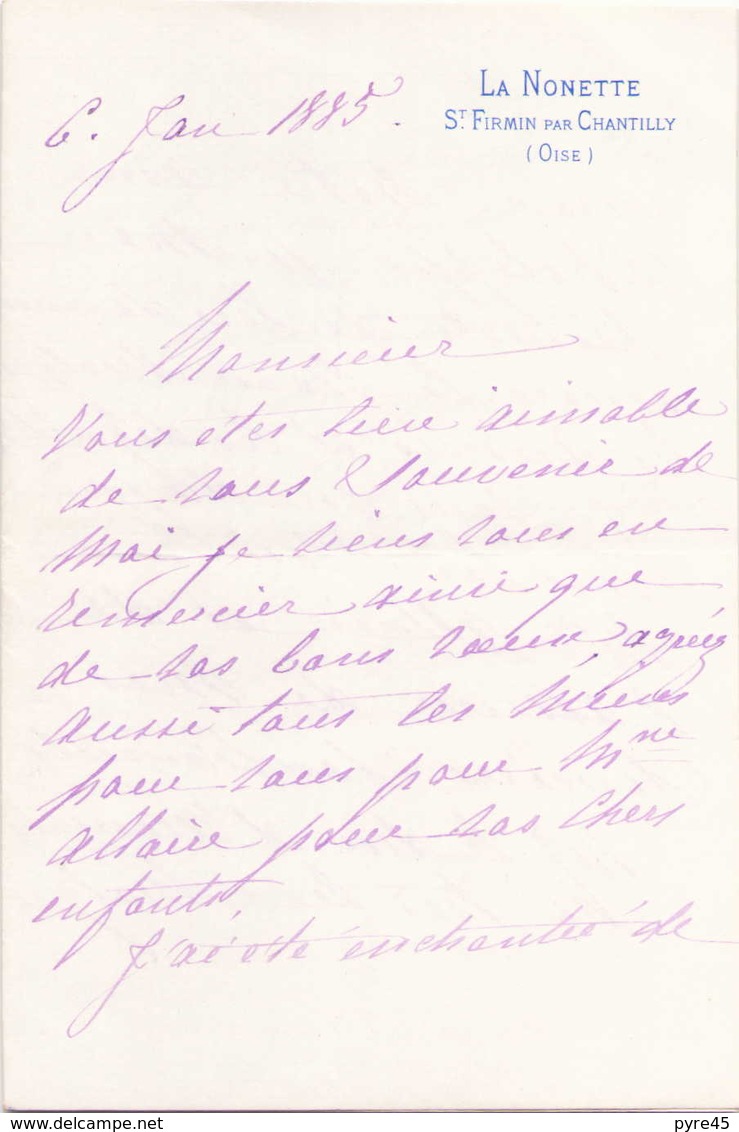 LA NONETTE
ST. FIRMIN PAR CHANTILLY
(OISE)
6. Jan 1885.
Monsieur
Vous etes bien aimable
de vous souvenir de
Moi je viens vous en
remercier ainsi que
de vos bons voeux agréez
aussi tous les Miens
pour vous pour Mme
Allaire pour vos Chers
enfants,
J'ai été enchantée de
pyre45